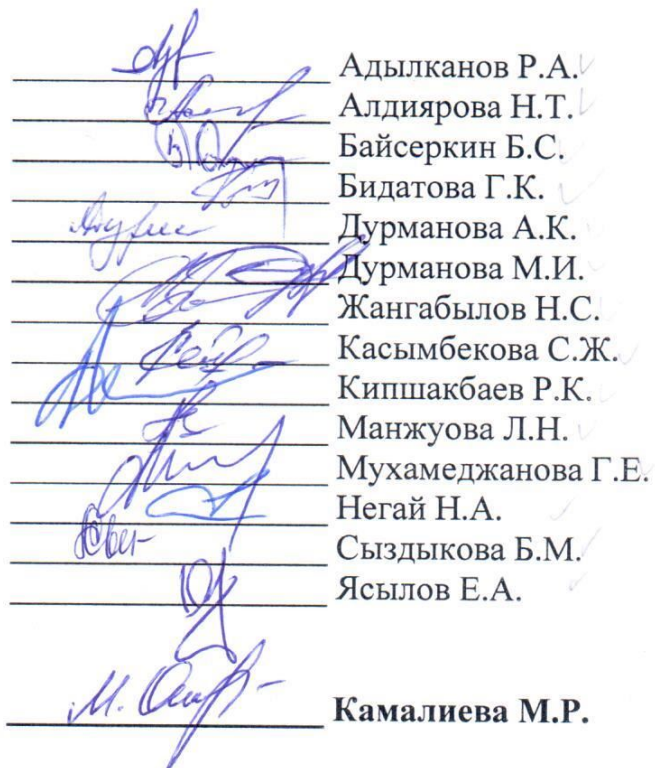 Адылканов Р.А.
Алдиярова Н.Т.
Байсеркин Б.С.
Бидатова Г.К.
Дурманова А.К.
Дурманова М.И.
Жангабылов Н.С.
Касымбекова С.Ж.
Кипшакбаев Р.К.
Манжуова Л.Н.
Мухамеджанова Г.Е.
Негай Н.А.
Сыздыкова Б.М.
Ясылов Е.А.
Камалиева М.Р.